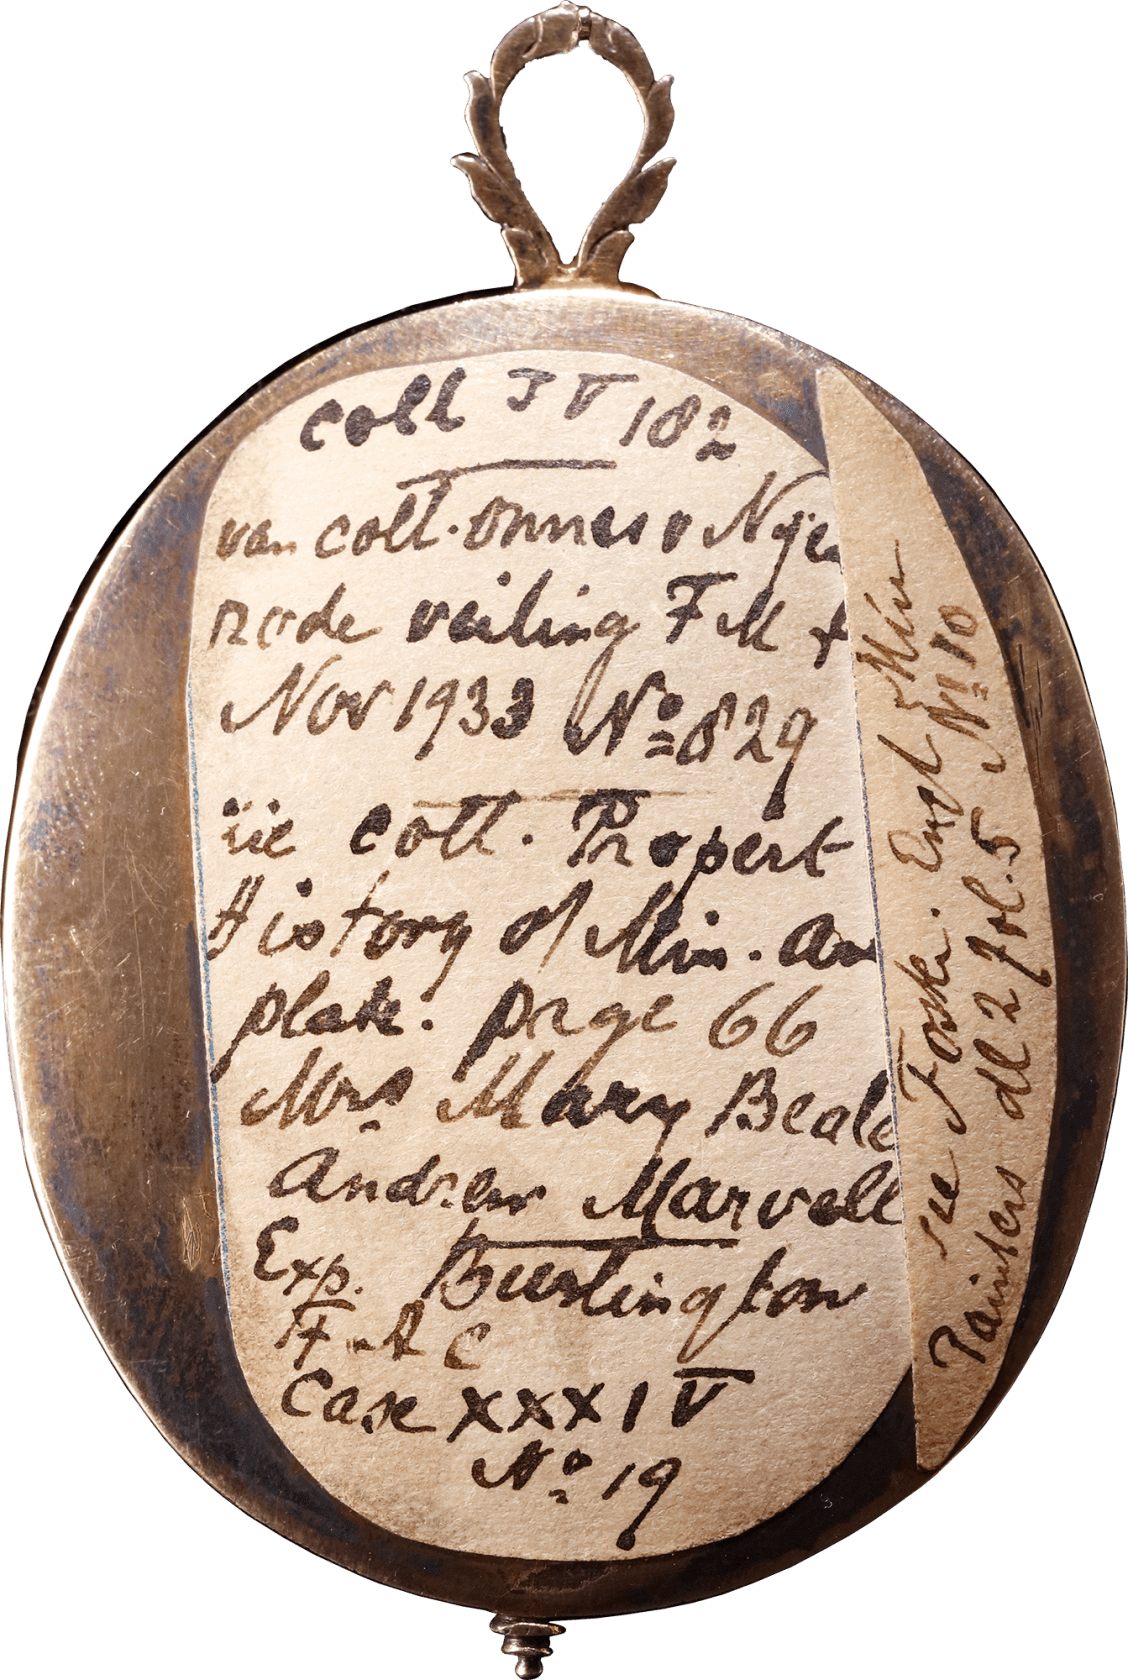 Coll IV 182
van coll. Onnes v Nÿen
rode veiling F M +
Nov 1933 Nº 829
zie coll. Propert
History of Min. an
plate. page 66
Mrs Mary Beale
Andrew Marvell
Exp. Burlington
F. A C
Case XXXIV
Nº 19
zie Foski. Engl Min
Painters dl 2 fol. 5 Nº 10